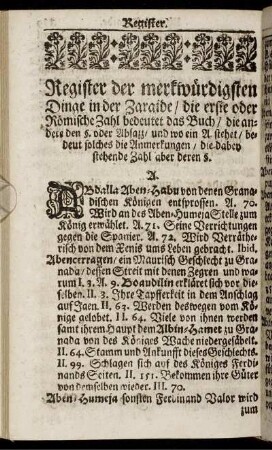 Register.
Register der merkwürdigsten
Dinge in der Zaraide/ die erste oder
Römische Zahl bedeutet das Buch/ die an-
dere den §. oder Absatz/ und wo ein A. stehet/ be-
deut solches die Anmerkungen/ die dabey
stehende Zahl aber deren §.
A.
ABdalla Aben-Zabu von denen Grana-
dischen Königen entsprossen. A. 70.
Wird an des Aben-Humeja Stelle zum
König erwählet. A. 71. Seine Verrichtungen
gegen die Spanier. A. 72. Wird Verräthe-
risch von dem Xenis ums Leben gebracht. Ibid.
Abencerragen/ ein Maurisch Geschlecht zu Gra-
nada/ dessen Streit mit denen Zegren und wa-
rum I. 3. A. 9. Boaudilin erkläret sich vor die-
selben. II. 3. Ihre Tapfferkeit in dem Anschlag
auf Jaen. II. 63. Werden deswegen vom Kö-
nige gelobet. II. 64. Viele von ihnen werden
samt ihrem Haupt dem Albin-Hamet zu Gra-
nada von des Königes Wache niedergesäbelt.
II. 64. Stamm und Ankunfft dieses Geschlechts.
II. 99. Schlagen sich auf des Königes Ferdi-
nands Seiten. II. 151. Bekommen ihre Güter
von demselben wieder. III. 70.
Aben-Humeja sonsten Ferdinand Valor wird
zum